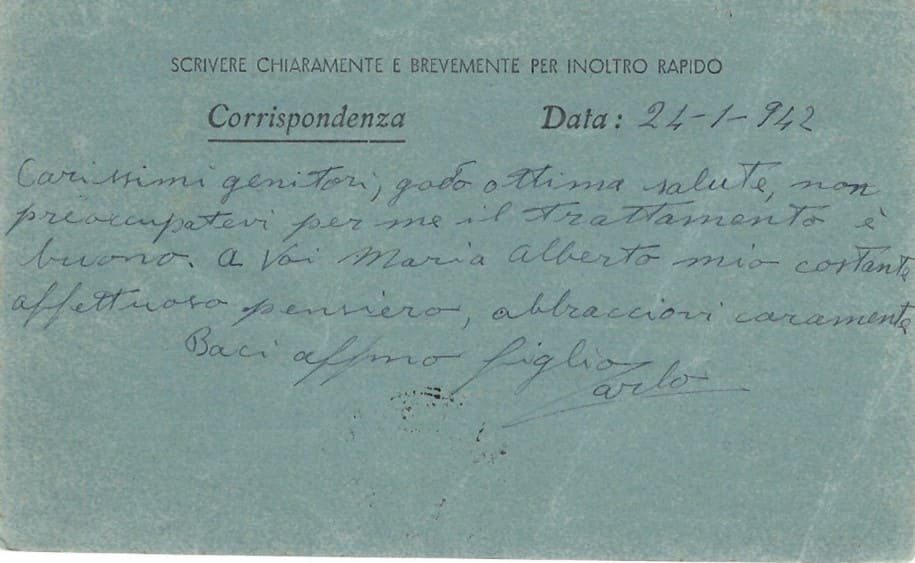 SCRIVERE CHIARAMENTE E BREVEMENTE PER INOLTRO RAPIDO
Corrispondenza Data: 24-1-942
Carissimi genitori, godo ottima salute, non
preoccupatevi per me il trattamento è
buono. A Voi Maria Alberto mio costante
affettuoso pensiero, abbracciovi caramente
Baci affmo figlio
Carlo